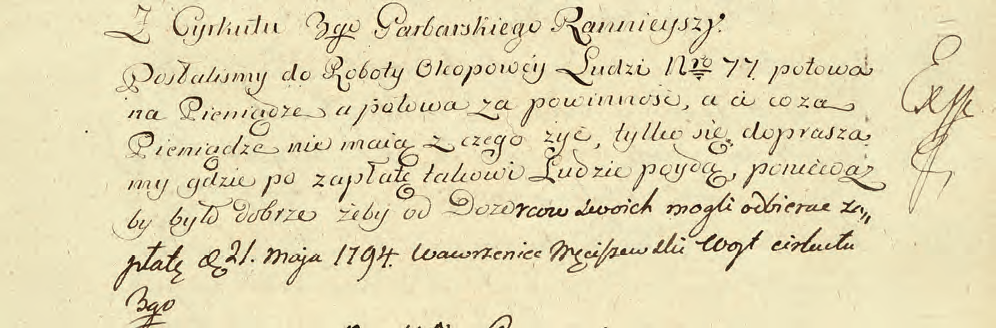 Z Cyrkułu 3go Garbarskiego Rannieyszy.
Posłalismy do Roboty Okopowey Ludzi Nro 77. połowa
na Pieniądze a połowa za powinność, a ci co za
Pieniądze nie maią z czego żyć, tylko się doprasza„
my gdzie po zapłatę takowi Ludzie poydą, poniewaz
by było dobrze żeby od Dozorcow swoich mogli odbierac za„
płatę D. 21. Maja 1794. Wawrzeniec Męciszewski Woyt cirkułu
3go
Exp